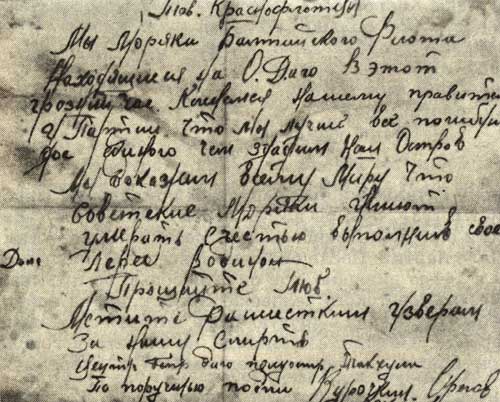 Тов. Краснофлотцы
Мы моряки Балтийского Флота
Находящиеся на О. Даго В этот
грозный час. Клянемся нашему правите
и Партии что мы лучше все погибн
до единого чем здадим Наш Остров
Мы докажем всему Миру что
Советские Моряки умеют
умерать с честью выполнив свое
Долг Перед Родиной
Прощайте Тов.
Мстите Фашистким извергам
За нашу Смерть
Даго
По поручению подпи Курочкин.